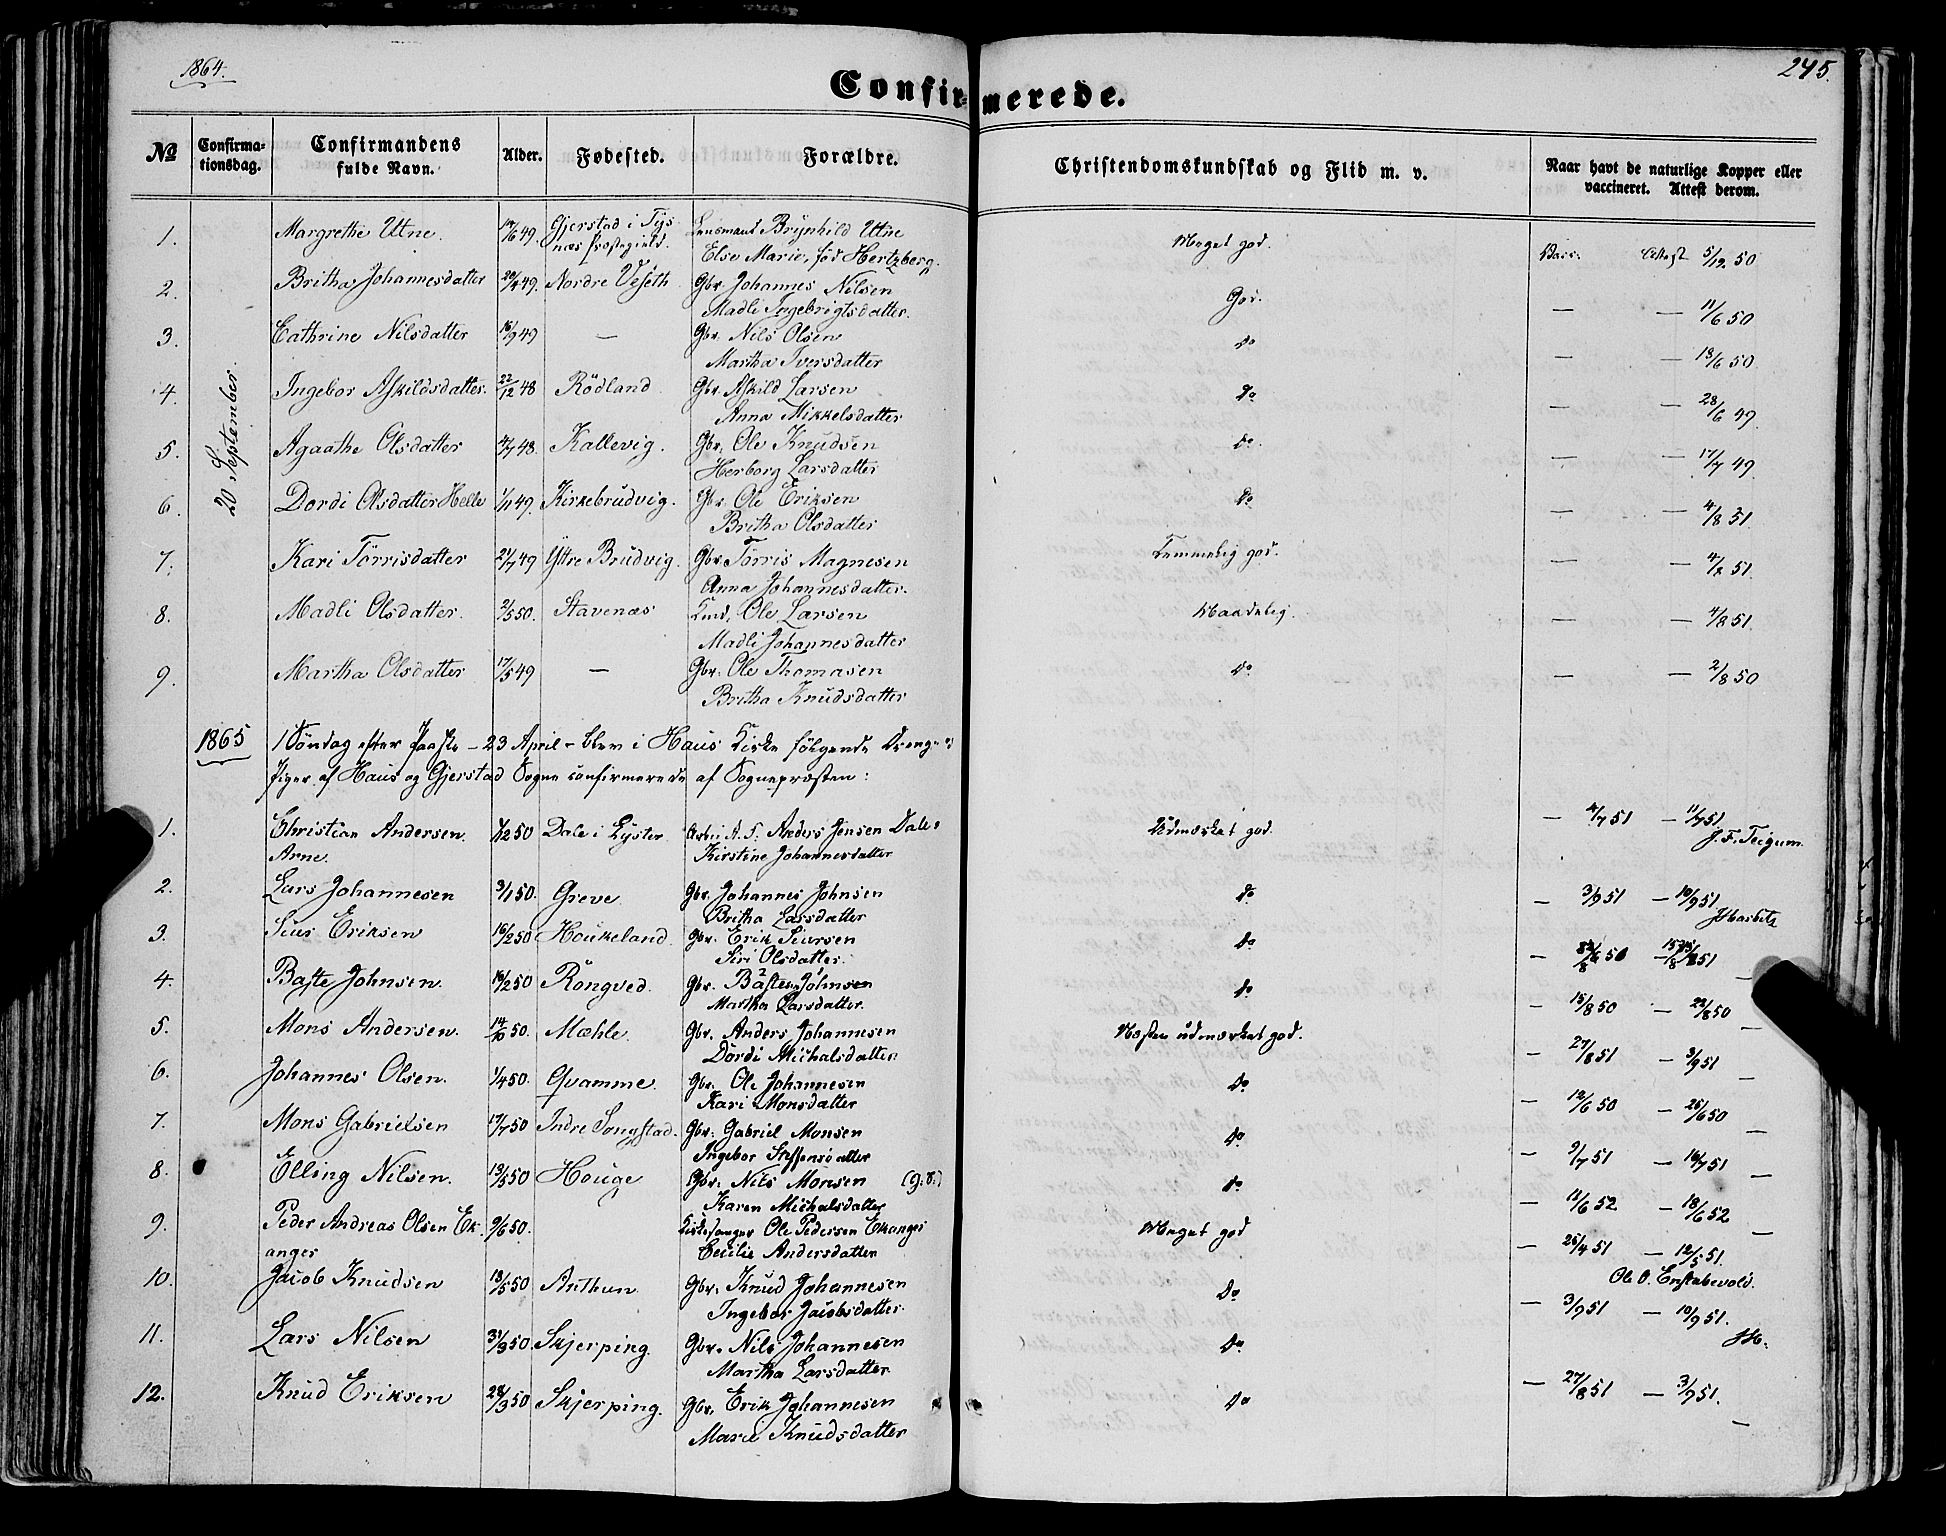 1864.
245.
Confirmerede.
No
Confirmationsdag.
Confirmandens fulde Navn.
Alder.
Fødested.
Forældre.
Christendomskundskab og Flid m. v.
Naar havt de naturlige Kopper eller vaccineret. Attest derom.
20 September.
1. Margrethe Utne. Gjerstad i Tysnæs Præstegield. Lensmand Brynhild Utne Meget god. Vacc. Attest 5/12 50
Else Marie, fød Hertzberg.
2. Britha Johannesdatter 49. Nordre Veseth Gbr. Johannes Nilsen God. — — 11/6 50
Madli Ingebrigtsdatter.
3. Cathrine Nilsdatter 16/9 49 — Gbr. Nils Olsen do — — 18/6 50
Martha Iversdatter
4. Ingebor Askildsdatter. 22/12 48 Rödland Gbr. Askild Larsen do — — 28/6 49
Anna Mikkelsdatter
5. Agaathe Olsdatter 48. Kallevig. Gbr. Ole Knudsen do. — — 17/7 49
Herborg Larsdatter
6. Dordi Olsdatter Helle 1/11 49. Kirkebrudvig. Gbr. Ole Eriksen do — — 4/8 51
Britha Olsdatter
7. Kari Törrisdatter 21/7 49 Yttre Brudvig. Gbr. Törris Magnesen Temmelig god. — — 51
Anna Johannesdatter.
8. Madli Olsdatter. 2/5 50. Stavenæs Ole Larsen Maadelig. — — 4/8 51
Madli Johannesdatter
9. Martha Olsdatter 17/5 49 — Gbr. Ole Thomasen do — — 2/8 50
Britha Knudsdatter
1865 1 Söndag efter Paaske – 23 April – blev i Haus Kirke fölgende Drenge og
Piger af Haus og Gjerstad Sogne confirmerede af Sognepræsten:
1. Christian Andersen 50 Dale i Lyster Anders Jensen Dale Udmærket god. — 4/7 51 — 11/7 51
Arne. Kirstine Johannesdatter J. F. Teigum.
2. Lars Johannesen 3/1 50. Greve Gbr. Johannes Johnsen do — 3/9 51 — 10/9 51
Britha Larsdatter
3. Siur Eriksen 16/2 50 Houkeland. Gbr. Erik Siursen do
Siri Olsdatter.
4. Baste Johnsen. 16/2 50 Röngved. Gbr. Basten Johnsen do — 15/8 50 — 22/8 50
Martha Larsdatter. —
5. Mons Andersen. 14/10 50. Mæhle. Gbr. Anders Johannesen Næsten udmærket god. — 27/8 51 — 3/9 51
Dordi Michalsdatter —
6. Johannes Olsen. 1/4 50. Qvamme. Gbr. Ole Johannesen do — 12/6 50 — 26/6 50
Kari Monsdatter —
7. Mons Gabrielsen 17/7 50 Indre Songstad. Gbr. Gabriel Monsen do — 9/7 51 — 16/7 51
Ingebor Steffensdatter —
8. Elling Nilsen. 13/5 50 Houge Gbr. Nils Monsen do — 11/6 52 — 18/6 52
Karen Michalsdatter —
9. Peder Andreas Olsen Ek- 9/6 50. Kirkesanger Ole Pedersen Ekanger Meget god — 25/4 51 — 12/5 51.
anger Cecilie Andersdatter Ole O.
10. Jacob Knudsen 18/5 50 Arthun Gbr. Knud Johannesen do — 3/9 51 — 10/9 51.
Ingebor Jacobsdatter
11. Lars Nilsen 50 Skjerping. Gbr. Nils Johannesen do — 27/8 51 — 3/9 51.
Martha Larsdatter —
12. Knud Eriksen 28/3 50 Skjerping. Gbr. Erik Johannesen do
Marie Knudsdatter